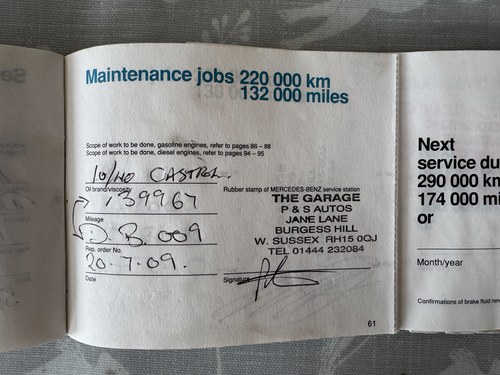 Maintenance jobs 220 000 km
132 000 miles
Scope of work to be done, gasoline engines, refer to pages 86 – 88
Scope of work to be done, diesel engines, refer to pages 94 – 95
10/40 CASTROL
Oil brand/viscosity
139967
Mileage
D.B. 009
Rep. order No.
20.7.09.
Date
Rubber stamp of MERCEDES-BENZ service station
THE GARAGE
P & S AUTOS
JANE LANE
BURGESS HILL
W. SUSSEX RH15 0QJ
TEL 01444 232084
Signature
61
Next
service du
290 000 km
174 000 mi
or
Month/year
Confirmations of brake fluid ren